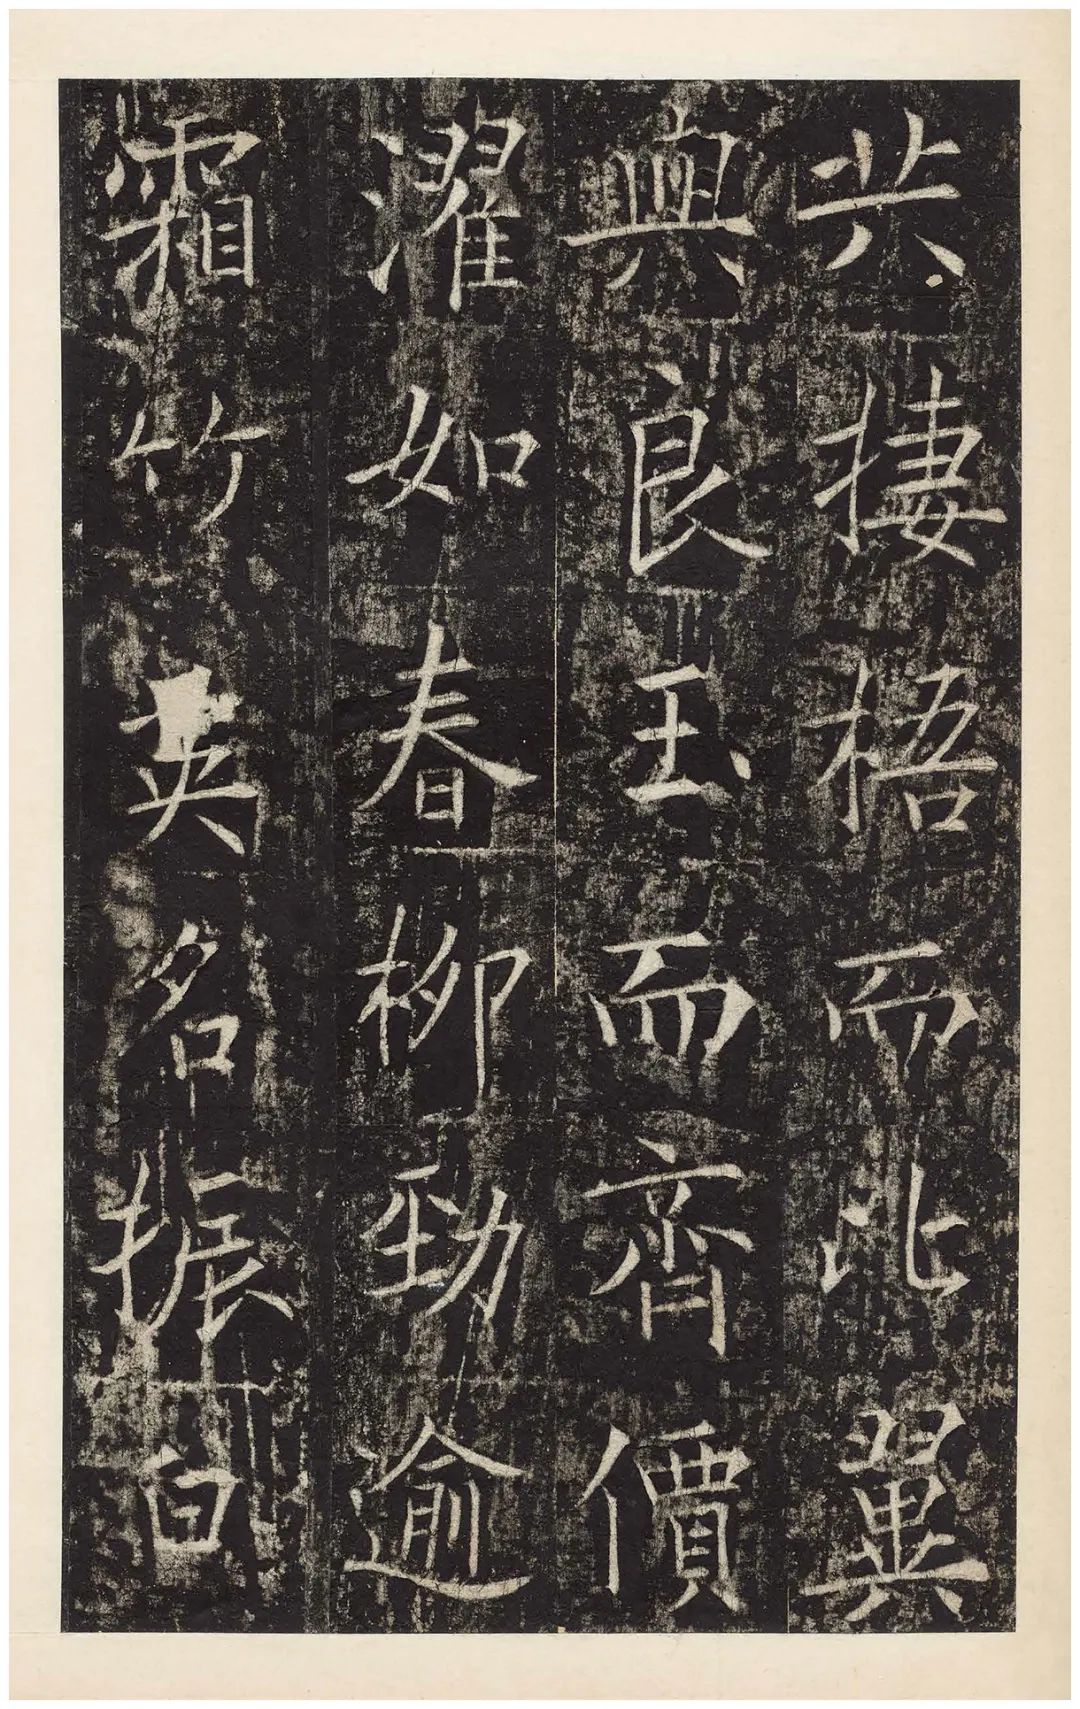 共捿梧而比翼
與良玉而齊價
濯如春柳勁逾
霜竹英名振白